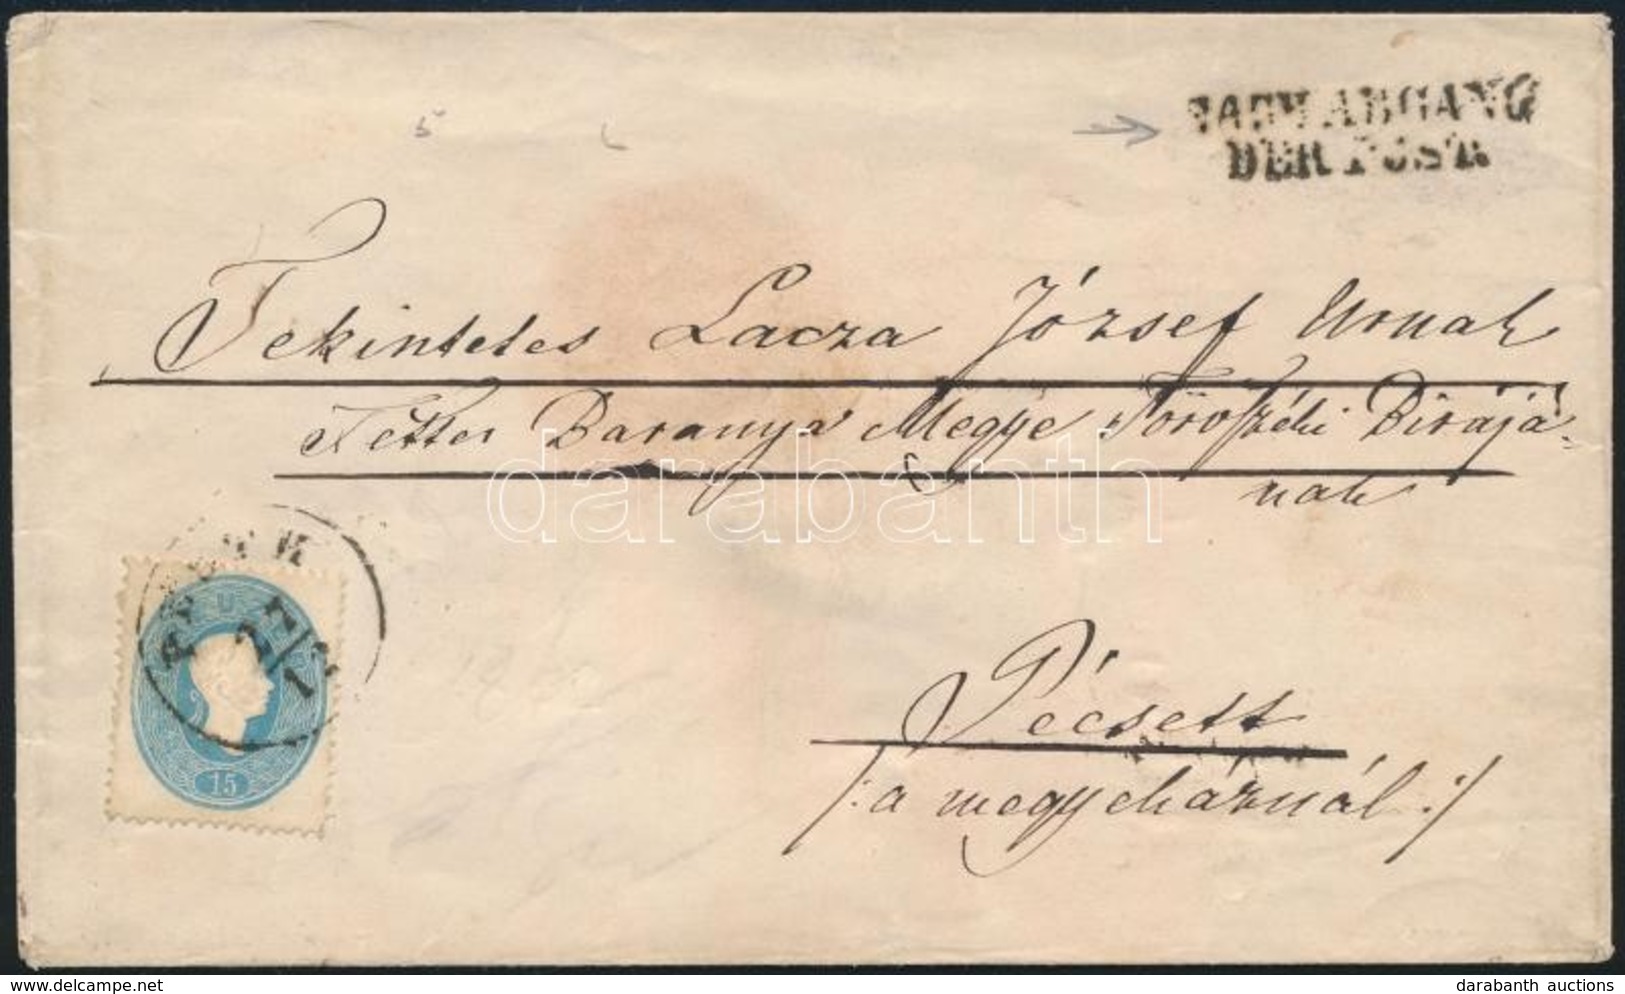 NACH ABGANG
DER POST.
5
Tekintetes Lacza József Urnak
Tettes Baranya Megye Törvszéki Birájá-
nak
darabanth
27
12
15
Pécsett
/: a megyeháznál :/
www.delcampe.net
darabanth auctions